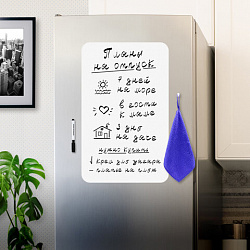 Планы
на отпуск
7 дней
на море
в гости
к маме
3 дня
на даче
нужно купить
крем для загара
– платье на пляж